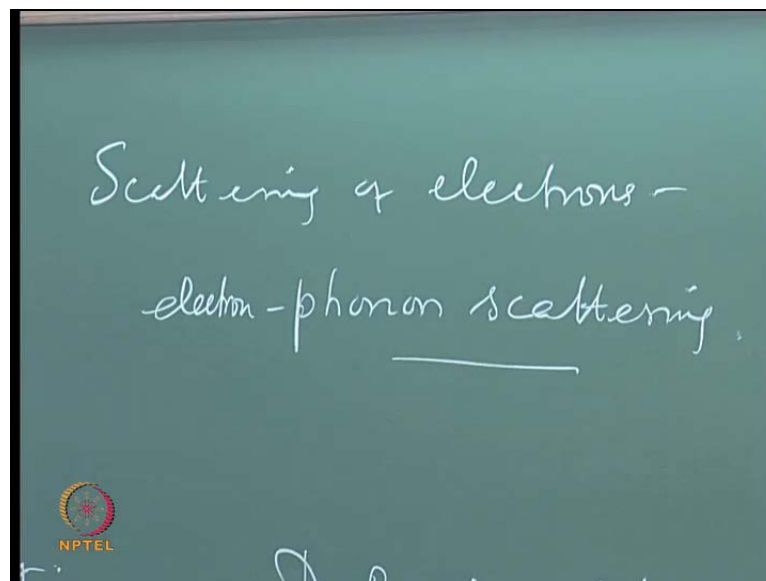 Scattering of electrons -
electron - phonon scattering.
NPTEL